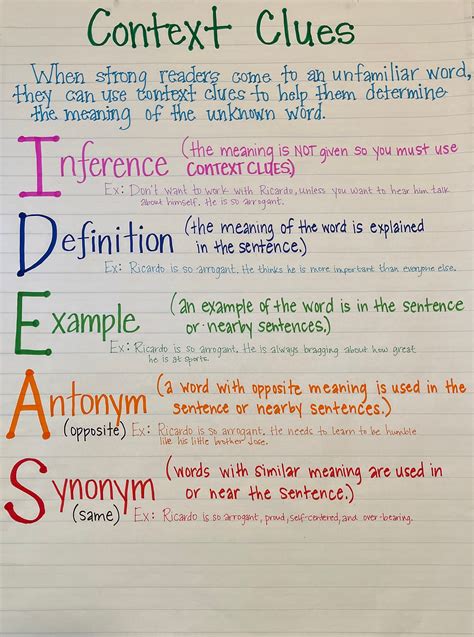 Context Clues
When strong readers come to an unfamiliar word,
they can use context clues to help them determine
the meaning of the unknown word.
Inference (the meaning is NOT given so you must use
CONTEXT CLUES)
Ex: Don't want to work with Ricardo, unless you want to hear him talk
about himself. He is so arrogant.
Definition (the meaning of the word is explained
in the sentence.)
Ex: Ricardo is so arrogant. He thinks he is more important than everyone else.
Example (an example of the word is in the sentence
or nearby sentences.)
Ex: Ricardo is so arrogant. He is always bragging about how great
he is at sports.
Antonym (a word with opposite meaning is used in the
sentence or nearby sentences.)
(opposite) Ex: Ricardo is so arrogant. He needs to learn to be humble
like his little brother Jose.
Synonym (words with similar meaning are used in
or near the sentence.)
(same) Ex: Ricardo is so arrogant, proud, self-centered, and over-bearing.